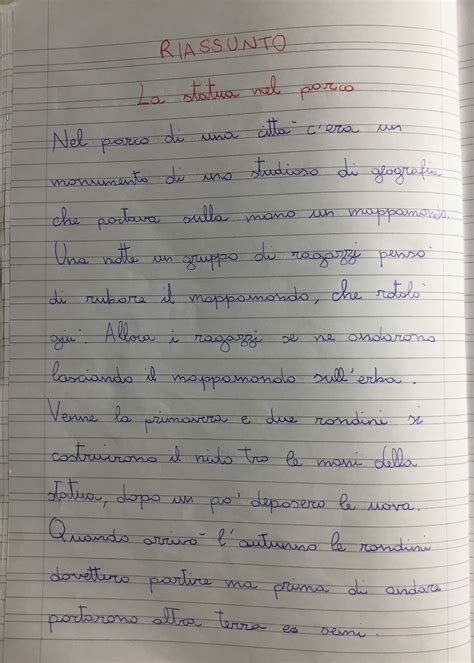 RIASSUNTO
La statua nel parco
Nel parco di una città c'era un
monumento di uno studioso di geografia
che portava sulla mano un mappamondo.
Una notte un gruppo di ragazzi pensò
di rubare il mappamondo, che rotolò
giù. Allora i ragazzi se ne andarono
lasciando il mappamondo sull'erba.
Venne la primavera e due rondini si
costruirono il nido tra le mani della
statua, dopo un po' deposero le uova.
Quando arrivò l'autunno le rondini
dovettero partire ma prima di andare
portarono altra terra es semi.